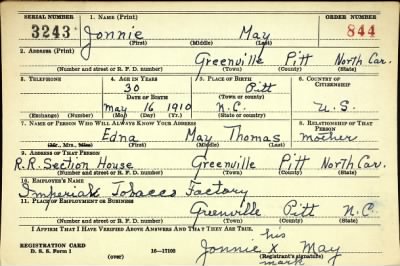 SERIAL NUMBER 1. NAME (Print) ORDER NUMBER
3243 Jonnie May 844
(First) (Middle) (Last)
2. ADDRESS (Print)
Greenville Pitt North Car.
(Number and street or R. F. D. number) (Town) (County) (State)
3. TELEPHONE 4. AGE IN YEARS 5. PLACE OF BIRTH 6. COUNTRY OF CITIZENSHIP
30 Pitt
DATE OF BIRTH (Town or county)
May 16 1910 N.C. U.S.
(Exchange) (Number) (Mo.) (Day) (Yr.) (State or country)
7. NAME OF PERSON WHO WILL ALWAYS KNOW YOUR ADDRESS 8. RELATIONSHIP OF THAT PERSON
Edna May Thomas mother
(Mr., Mrs., Miss) (First) (Middle) (Last)
9. ADDRESS OF THAT PERSON
R.R. Section House Greenville Pitt North Car.
(Number and street or R. F. D. number) (Town) (County) (State)
10. EMPLOYER'S NAME
Imperial Tobacco Factory
11. PLACE OF EMPLOYMENT OR BUSINESS
Greenville Pitt N.C.
(Number and street or R. F. D. number) (Town) (County) (State)
I AFFIRM THAT I HAVE VERIFIED ABOVE ANSWERS AND THAT THEY ARE TRUE.
his
REGISTRATION CARD Jonnie X May
D. S. S. Form 1 (over) 16—17105 (Registrant's signature)
mark